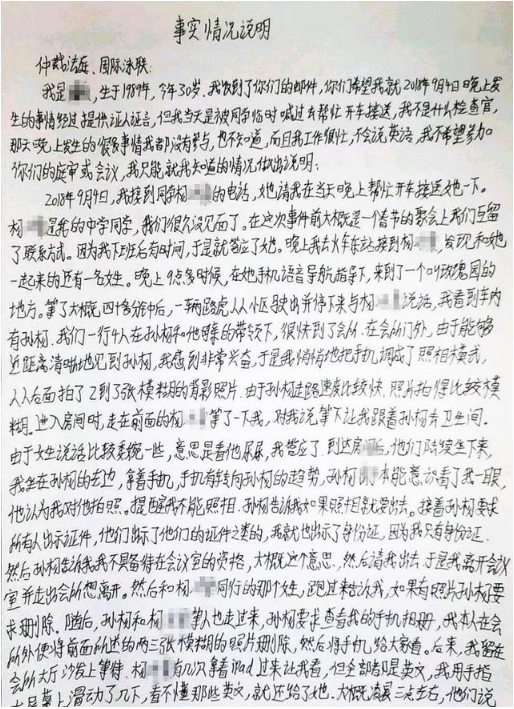 事实情况说明
仲裁法庭、国际泳联:
我是 ,生于1989年,今年30岁。我收到了你们的邮件,你们希望我就2018年9月4日晚上发
生的事情经过提供证人证言,但我当天是被同学临时喊过去帮忙开车接送,我不是什么检查官,
那天晚上发生的很多事情我都没有参与,也不知道,而且我工作很忙,不会说英语,我不希望参加
你们的庭审或会议,我只能就我知道的情况做出说明:
2018年9月4日,我接到同学杨 的电话,她请我在当天晚上帮忙开车接送她一下。
杨 是我的中学同学,我们很久没见面了。在这次事件前大概是一个春节的聚会上我们互留
了联系方式。因为我下班后有时间,于是就答应了她。晚上我去火车东站接到杨 ,发现和她
一起来的还有一名女生。晚上9点多时候,在她手机语音导航指挥下,来到了一个叫玫瑰园的
地方。等了大概四十多分钟后,一辆路虎从小区驶出并停下来与杨 说话,我看到车内
有孙杨。我们一行4人在孙杨和他 的带领下,很快到了会所。在会所门外,由于能够
近距离清晰地见到孙杨,我感到非常兴奋,于是我悄悄地把手机调成了照相模式,
从后面拍了2到3张模糊的背影照片。由于孙杨走路速度比较快,照片拍得比较模
糊。进入房间时,走在前面的杨 等了一下我,对我说等下让我跟着孙杨去卫生间。
由于女生说话比较委婉一些,意思是看他尿尿,我答应了。到达房间后,他们陆续坐下来,
我坐在孙杨的右边,拿着手机,手机有转向孙杨的趋势,孙杨 本能意识看了我一眼,
他认为我对他拍照。提醒我不能照相。孙杨告诉我如果照相就要出去。接着孙杨要求
所有人出示证件,他们出示了他们的证件之类的,我就也出示了身份证,因为我只有身份证。
然后孙杨告诉我我不具备待在会议室的资格,大概这个意思,然后请我出去,于是我离开会议
室并走出会所想离开。然后和杨 同行的那个女生,跑过来告诉我,如果有照片孙杨要
求删除,随后,孙杨和杨 等人也走过来,孙杨要求查看我的手机相册,我本人在会
所外便将前面所述的两三张模糊的照片删除,然后将手机给大家看。后来,我留在
会所大厅沙发上等待。杨 有几次拿着ipad过来让我看,但全部都是英文,我用手指
在屏幕上滑动了几下,看不懂那些英文,就还给了她。大概凌晨三点左右,他们说